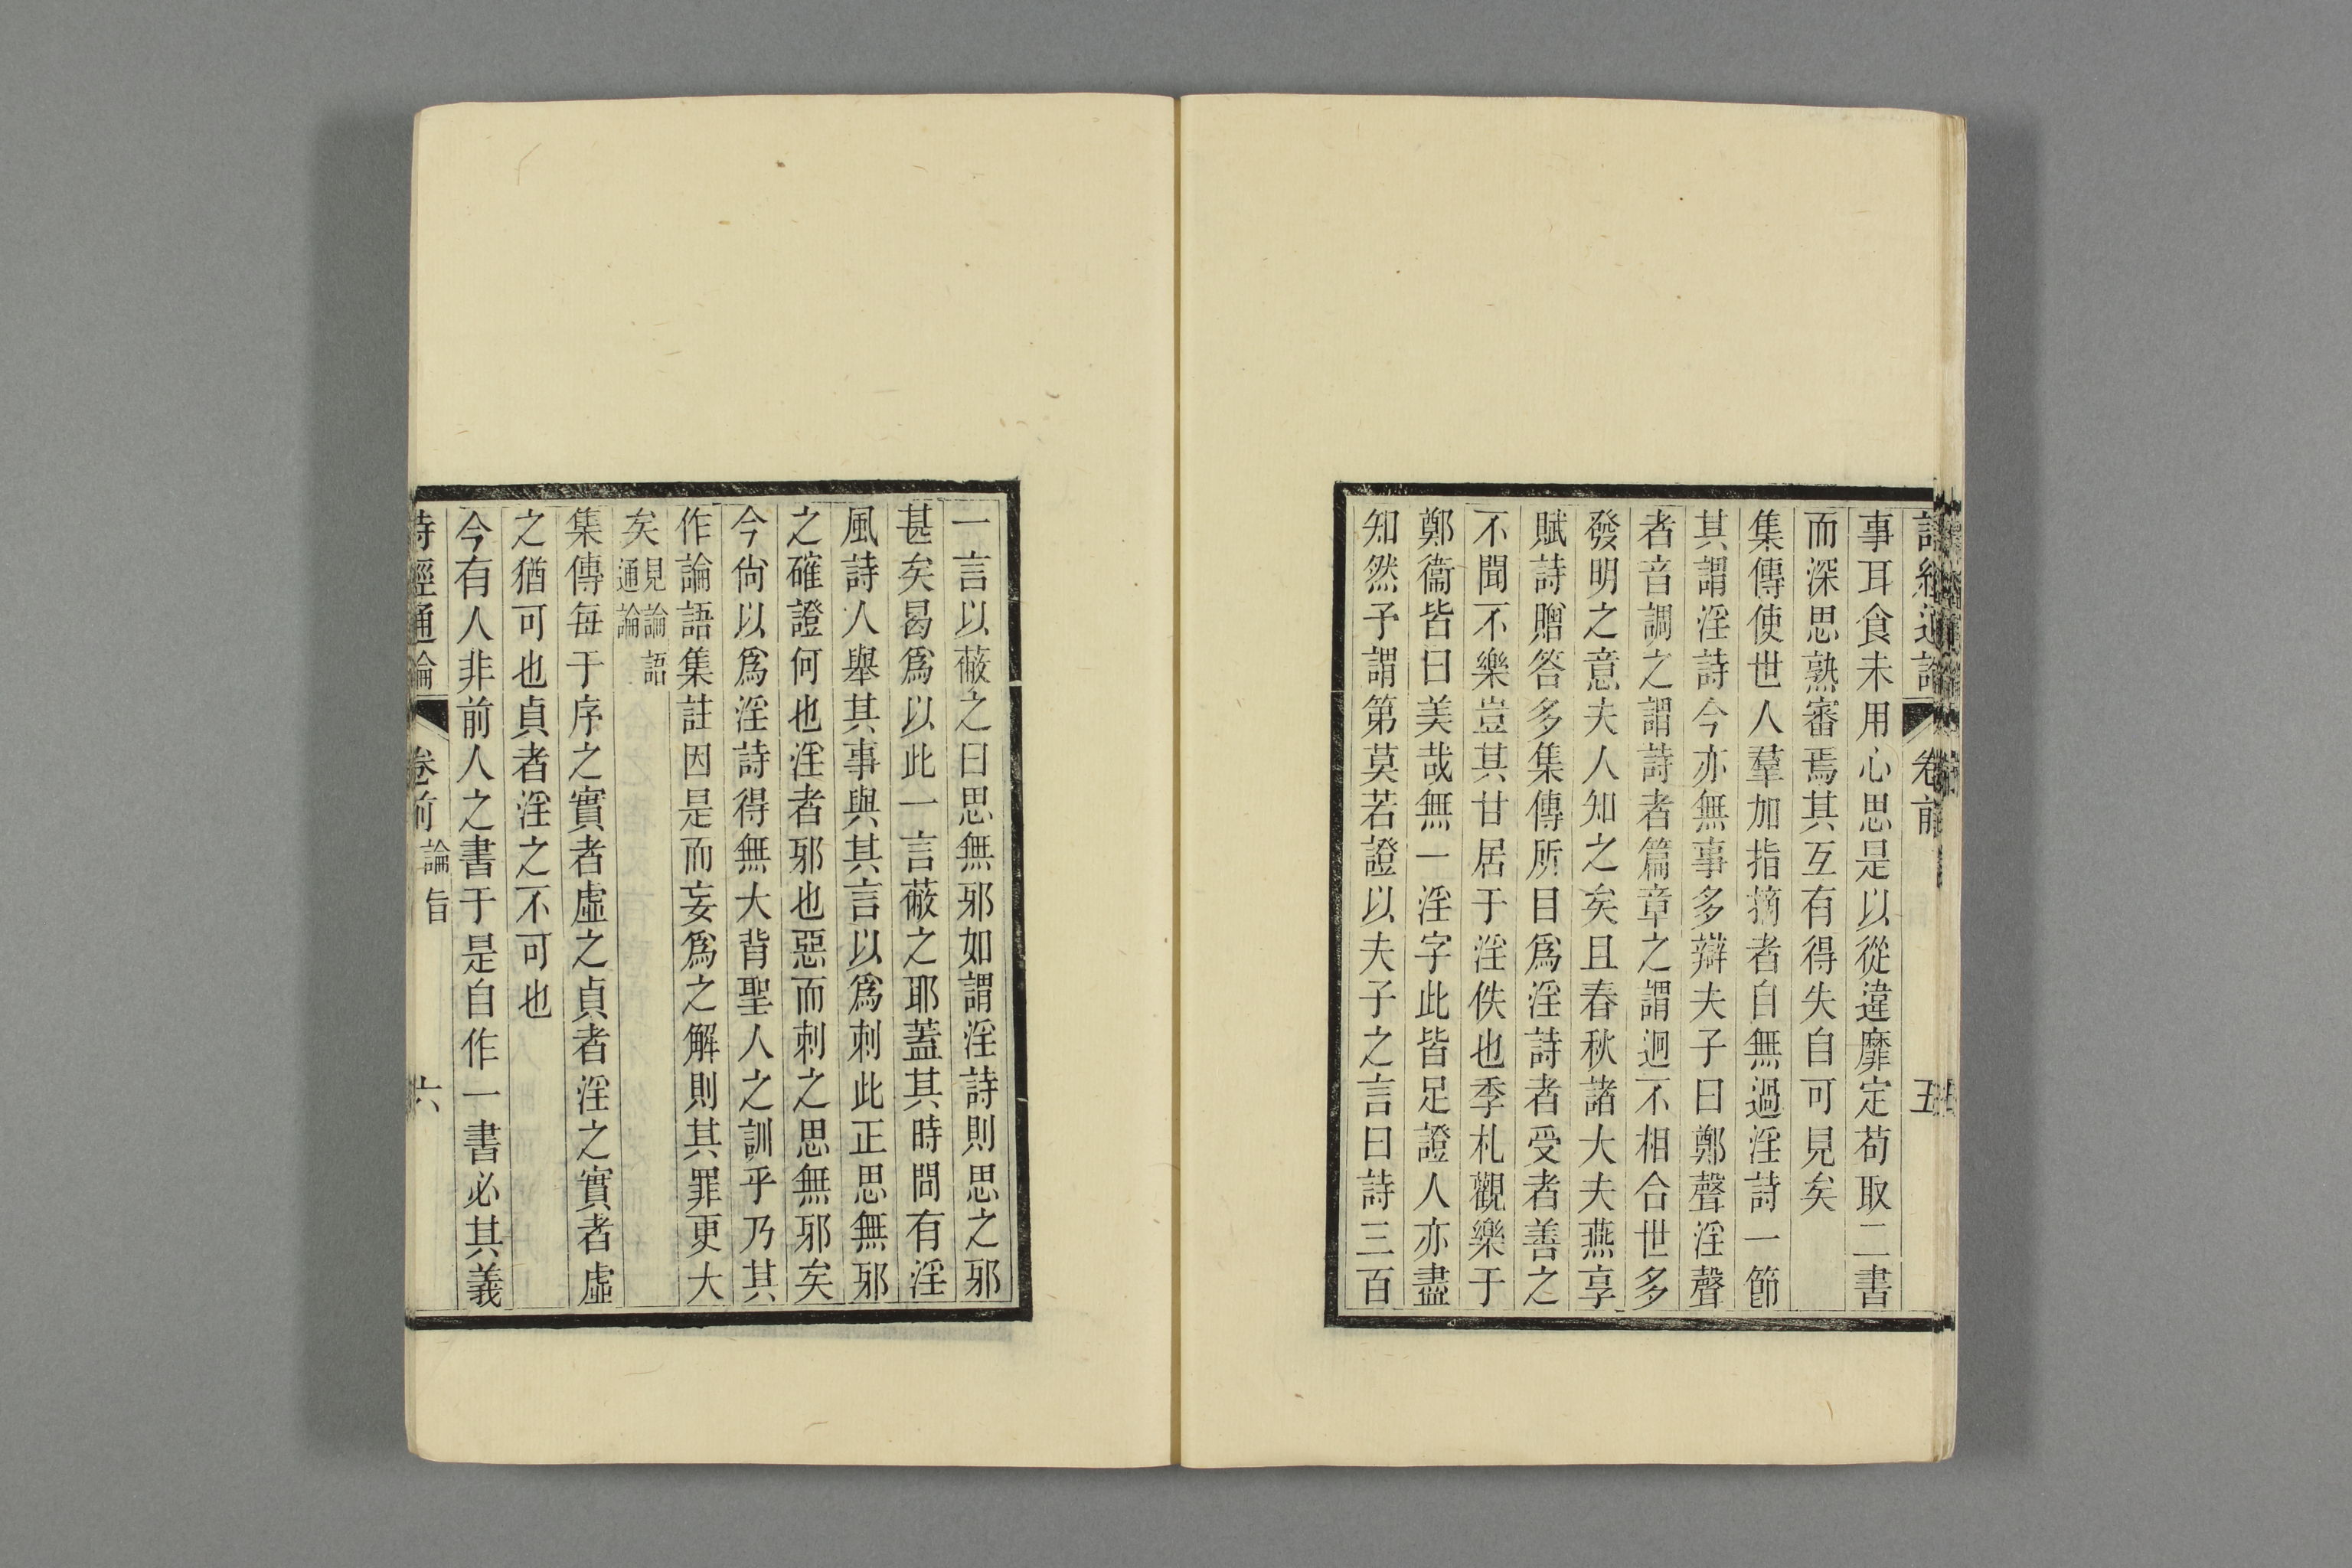 詩經通論 卷前 五
事耳食未用心思是以從違靡定苟取二書
而深思熟審焉其互有得失自可見矣
集傳使世人羣加指摘者自無過淫詩一節
其謂淫詩今亦無事多辯夫子曰鄭聲淫聲
者音調之謂詩者篇章之謂迥不相合世多
發明之意夫人知之矣且春秋諸大夫燕享
賦詩贈答多集傳所目爲淫詩者受者善之
不聞不樂豈其甘居于淫佚也季札觀樂于
鄭衞皆曰美哉無一淫字此皆足證人亦盡
知然予謂第莫若證以夫子之言曰詩三百
一言以蔽之曰思無邪如謂淫詩則思之邪
甚矣曷爲以此一言蔽之耶蓋其時間有淫
風詩人舉其事與其言以爲刺此正思無邪
之確證何也淫者邪也惡而刺之思無邪矣
今尙以爲淫詩得無大背聖人之訓乎乃其
作論語集註因是而妄爲之解則其罪更大
矣見論語通論
集傳每于序之實者虛之貞者淫之實者虛
之猶可也貞者淫之不可也
今有人非前人之書于是自作一書必其義
詩經通論 卷前 論旨 六